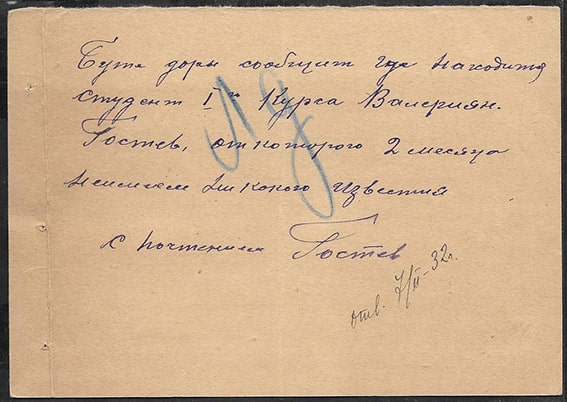 Буте добры сообщит где находится
студент I го Курса Валериян.
Гостев, от которого 2 месяца
неимеем никокого Известия
с почтением Гостев
отв. 7/II-32г.